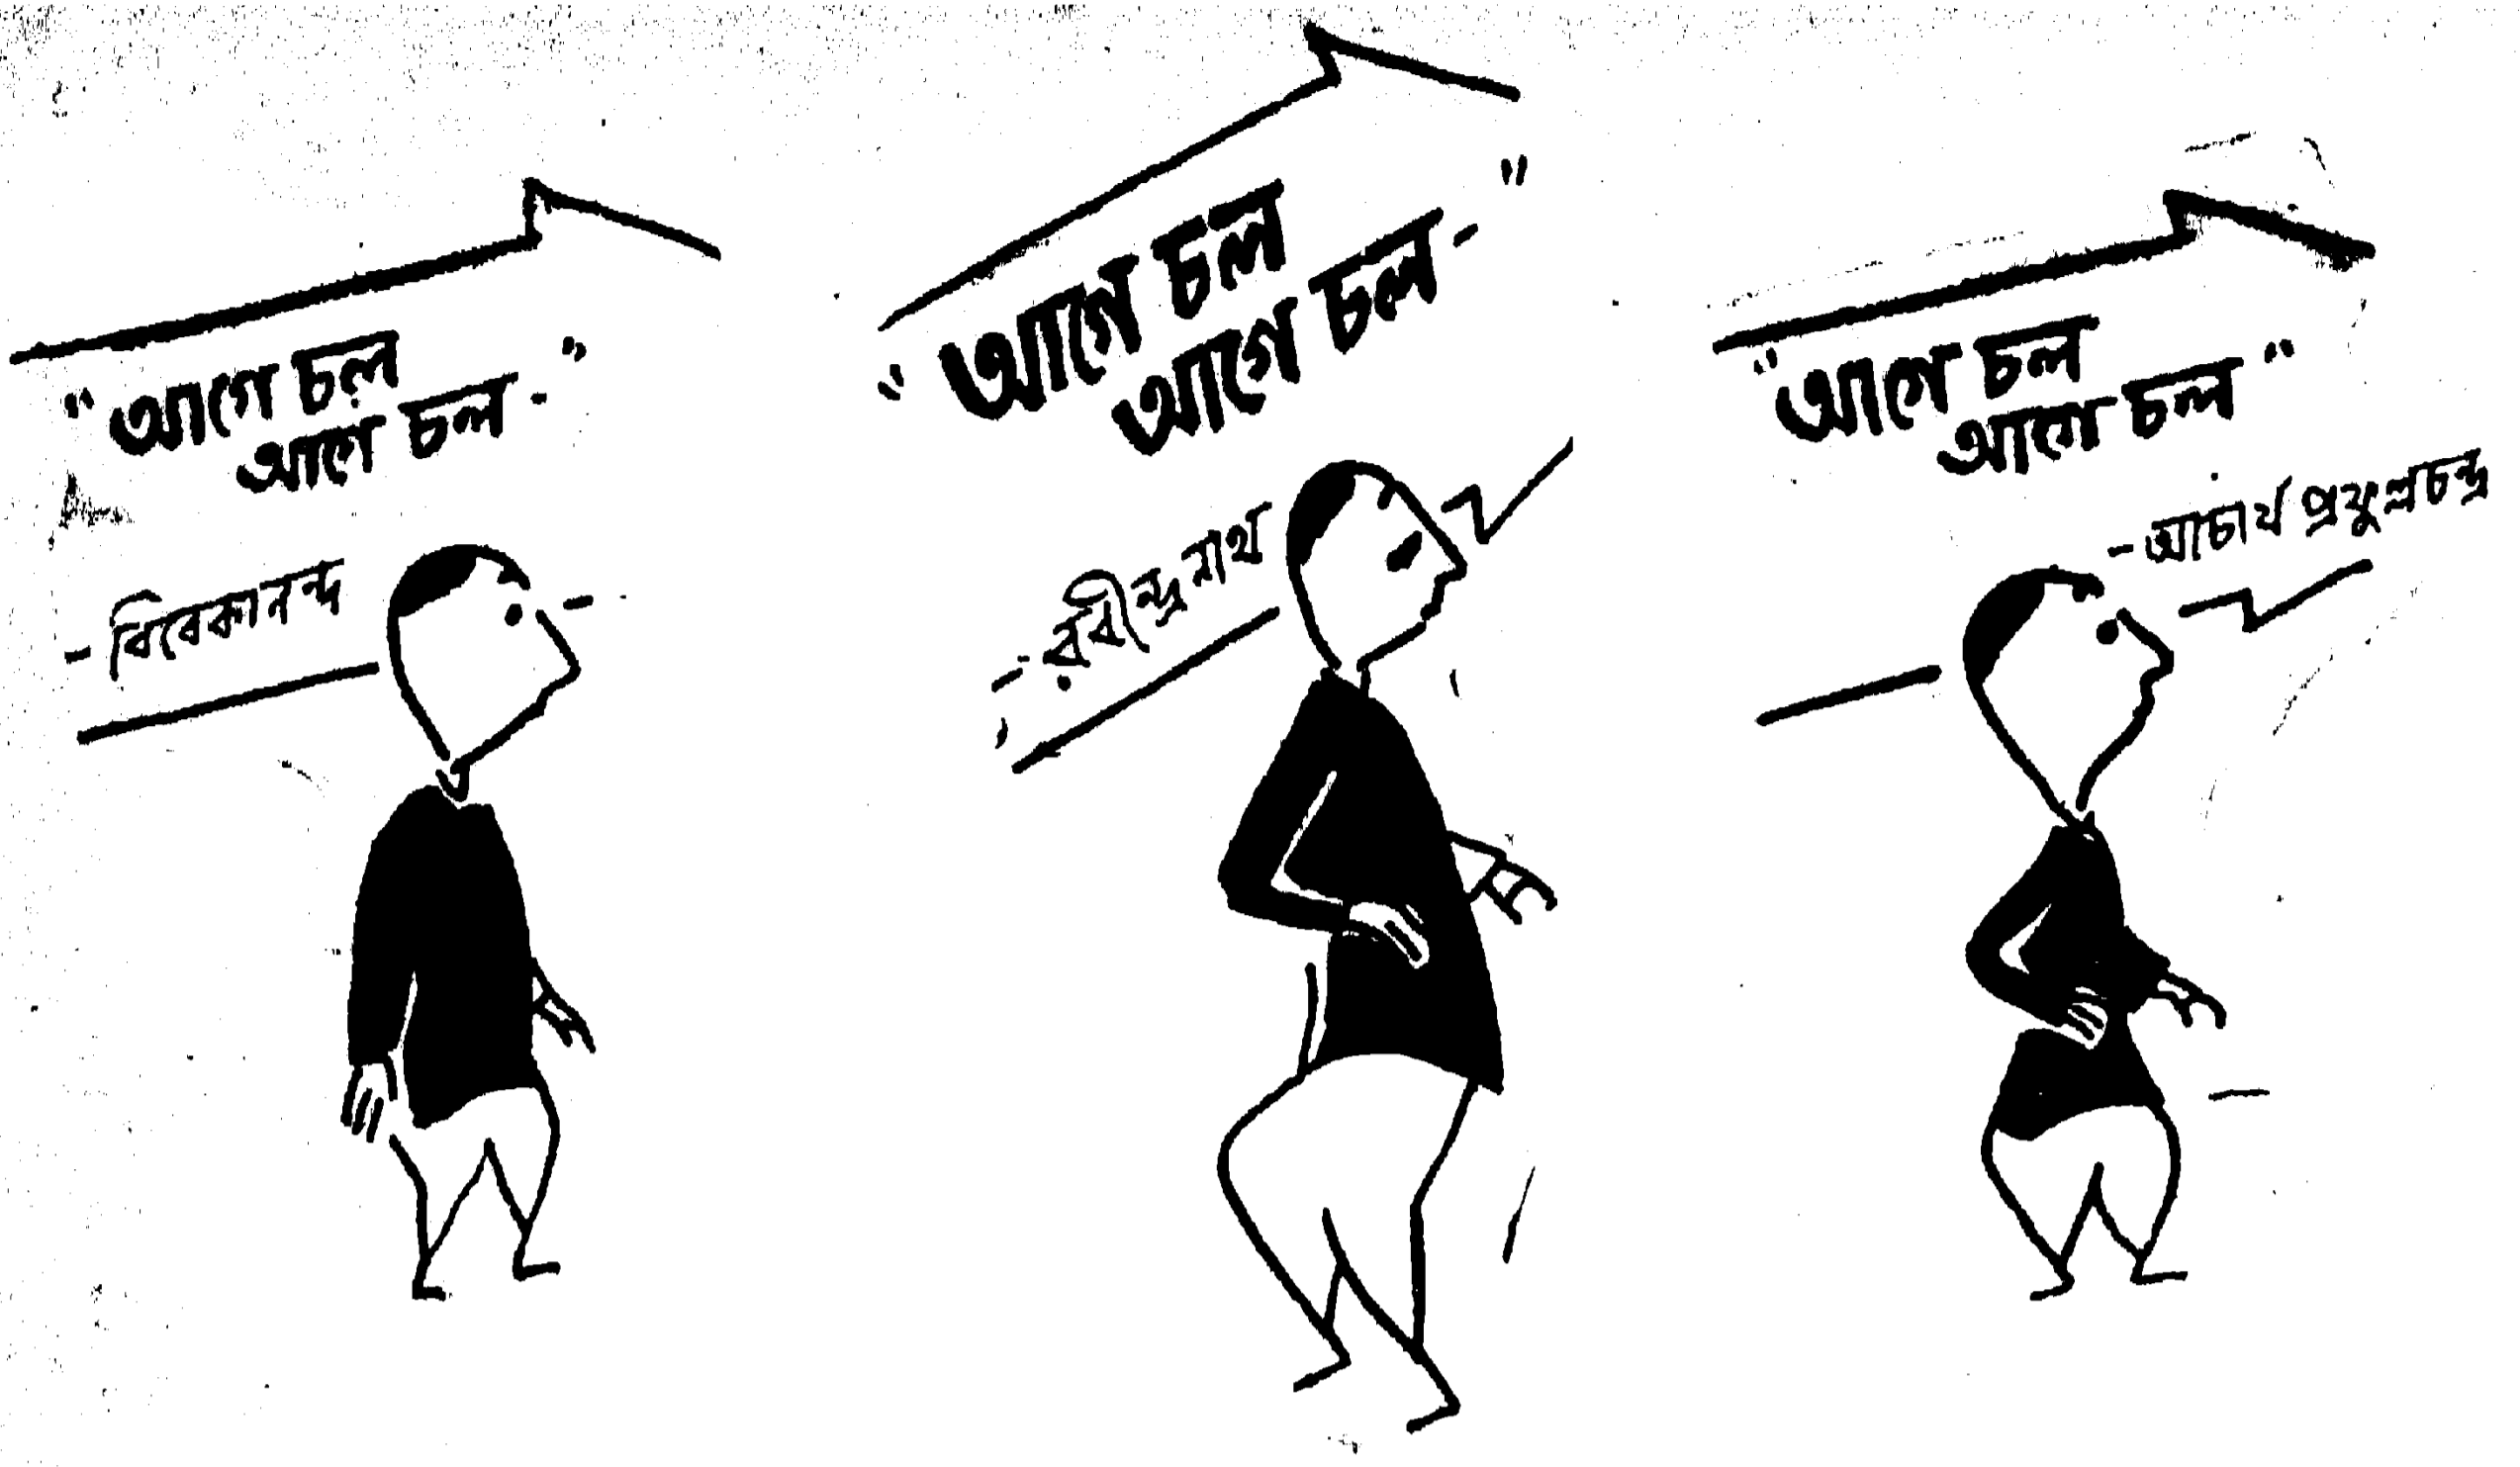 "আগে চল
আগে চল-"
- বিবেকানন্দ
"আগে চল
আগে চল-"
- রবীন্দ্রনাথ
"আগে চল
আগে চল"
- আচার্য প্রফুল্লচন্দ্র